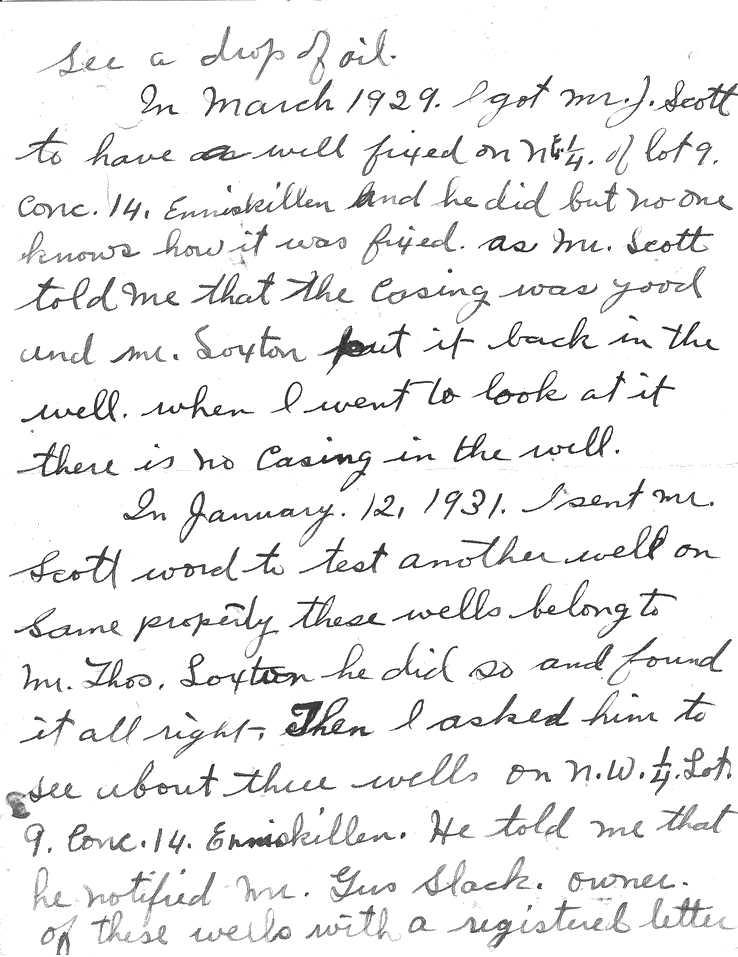 see a drop of oil.
In March 1929. I got Mr. J. Scott
to have a well fixed on NE 1/4. of lot 9.
Conc. 14. Enniskillen And he did but no one
knows how it was fixed. as Mr. Scott
told me that the Casing was good
and Mr. Loxton put it back in the
well. when I went to look at it
there is no Casing in the well.
In January. 12, 1931. I sent Mr.
Scott word to test another well on
Same property these wells belong to
Mr. Thos. Loxton he did so and found
it all right, Then I asked him to
see about three wells on N.W. 1/4. Lot.
9. Conc. 14. Enniskillen. He told me that
he notified Mr. Gus Slack. owner.
of these wells with a registered letter